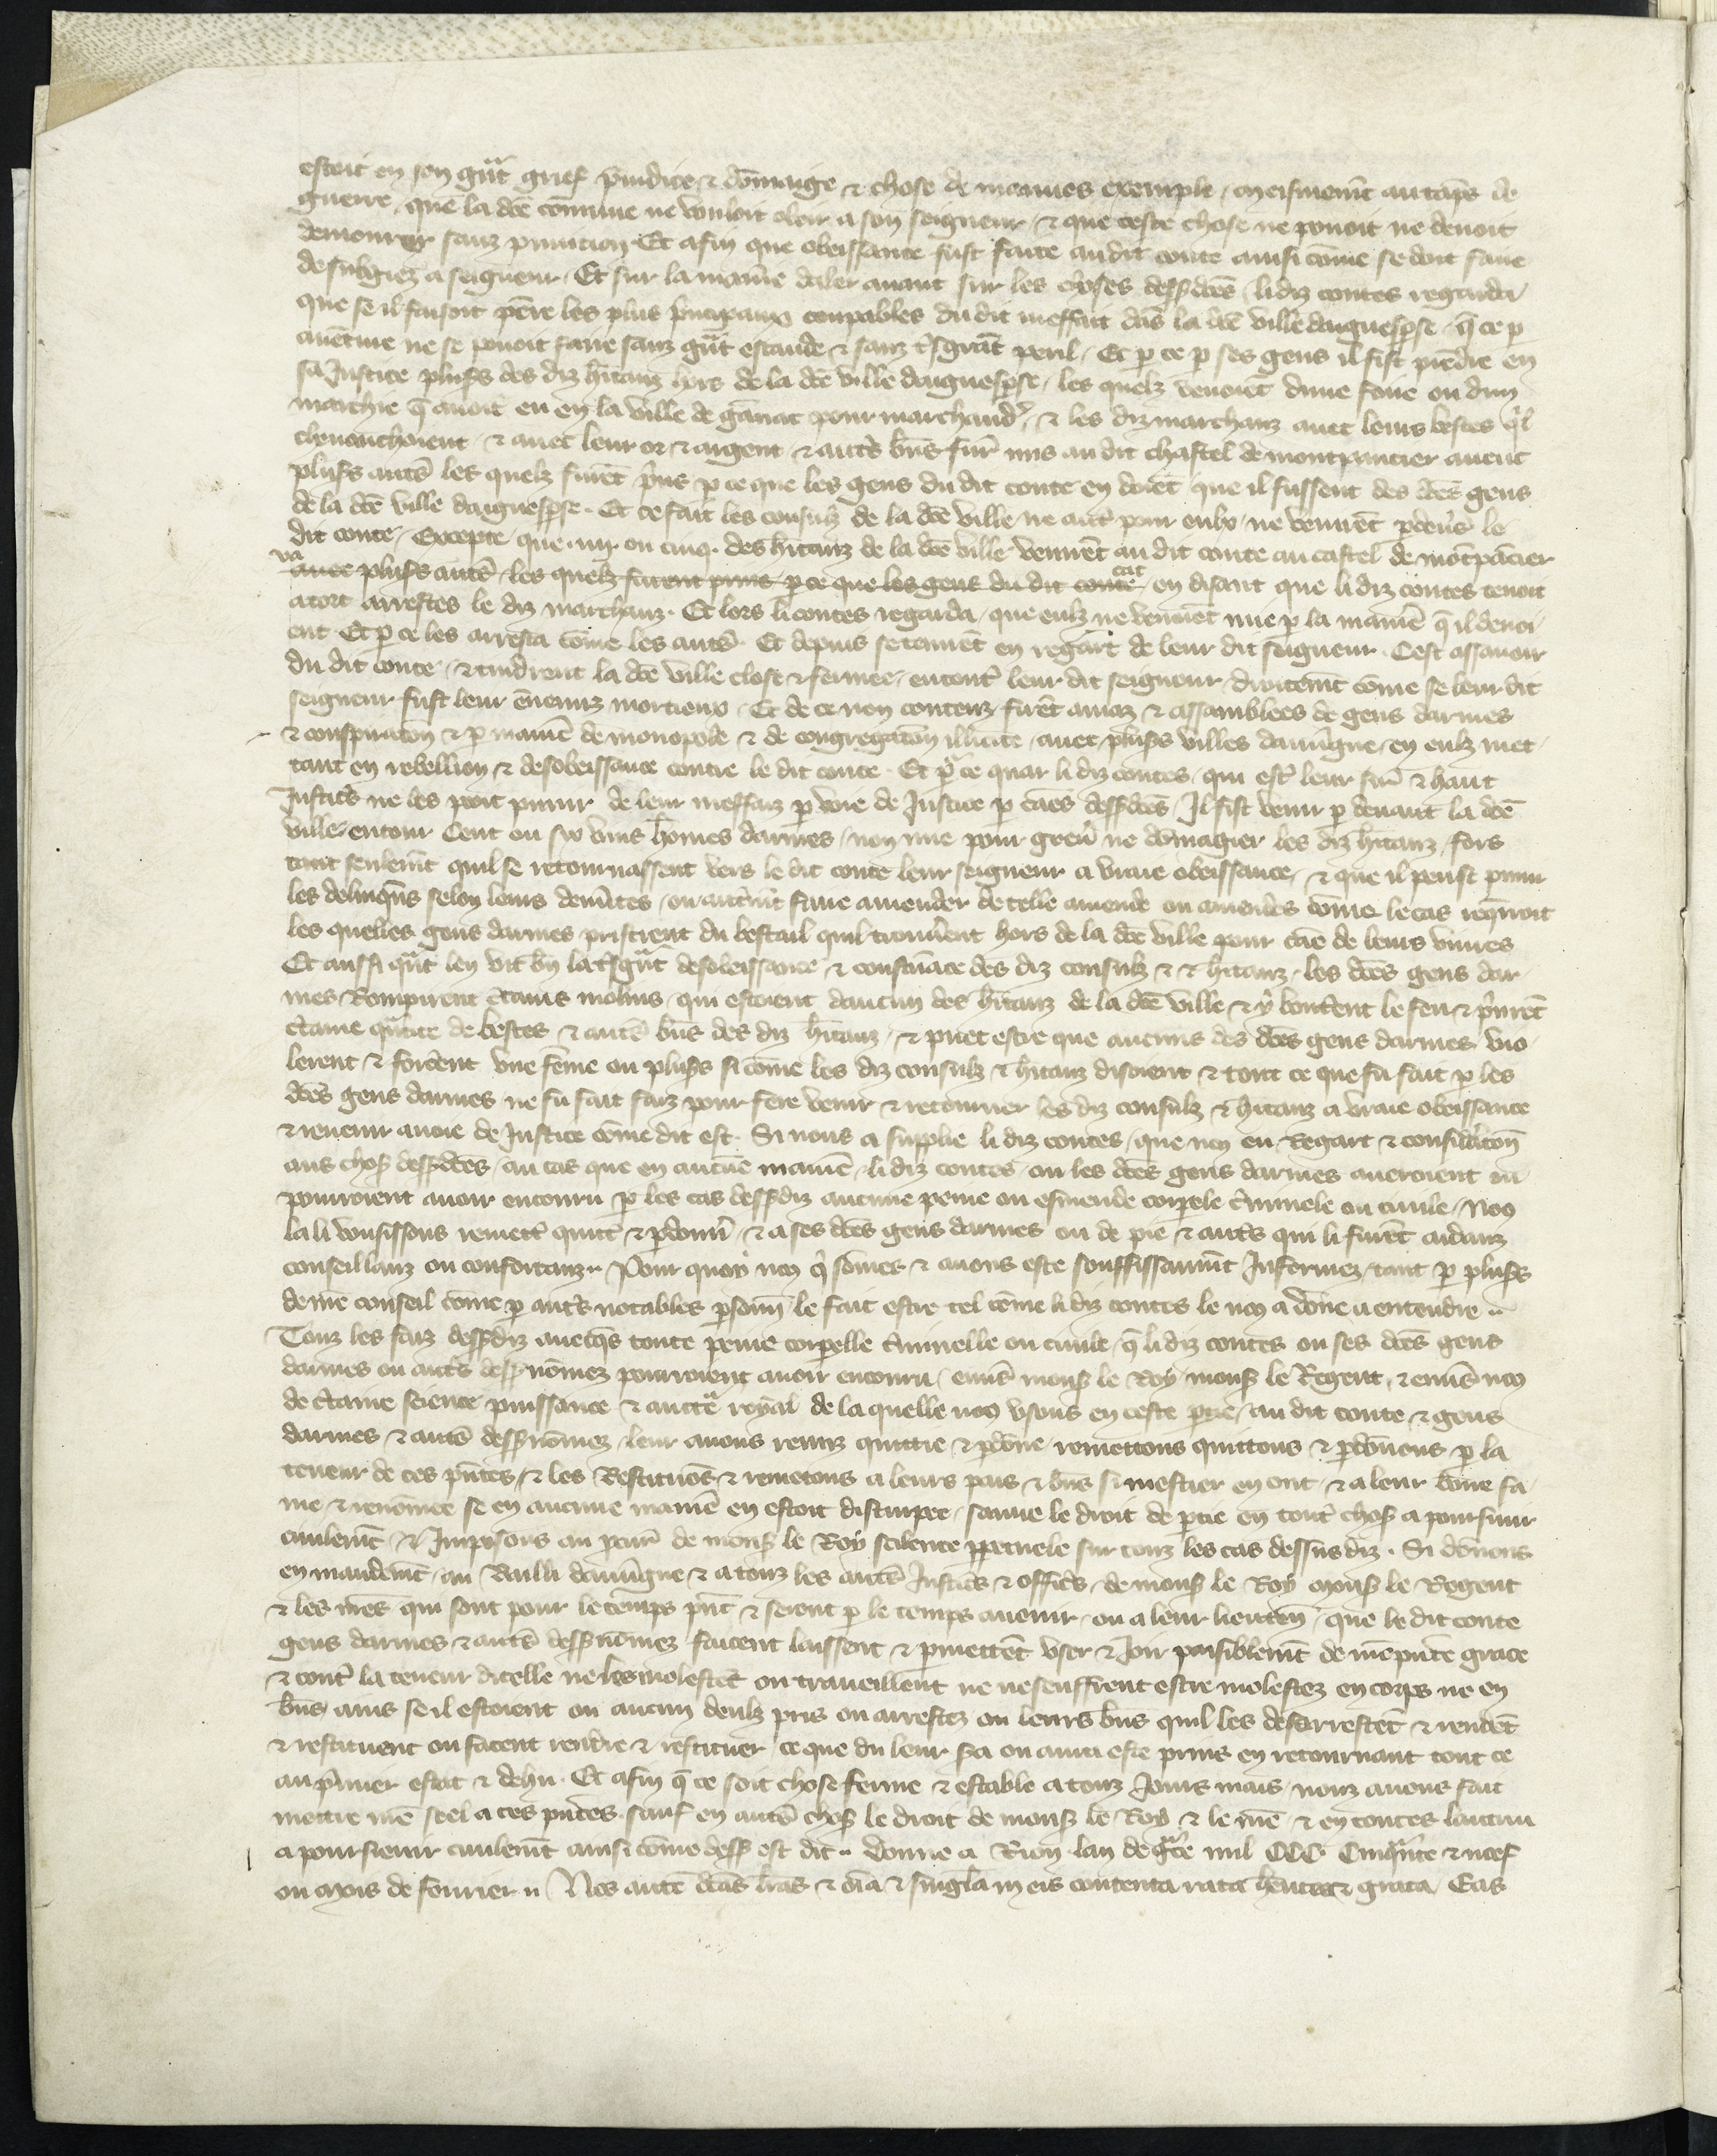 estoit en son gñt grief p̃iudice ⁊ dõmaige ⁊ chose de mauues exemple / meismem̃t au tẽps de
guerre, que la dc̃e cõmune ne vouloit obeir a son seigneur / ⁊ que ceste chose ne pouoit ne deuoit
demourer sanz punition. Et afin que obeissance fust faite au dit conte ainsi cõme se doit faire
de subgiez a seigneur. Et sur la manie᷑ daler auant sur les choses dess᷑ dc̃es / li diz contes regarda
que se il faisoit pẽre les plus p̃ncipaux coupables du dit meffait dãs la dc̃e ville daigueßpse / q̃ ce p
auẽture ne se pouoit faire sanz gñt escande ⁊ sanz tsgrãt peril / Et p ce p ses gens il fist prẽdre en
sa Justice plus᷑s des diz hitanz hors de la dc̃e ville daigueßpse / les quelz venoiẽt dune foire ou dun
marchie q̃ auoit eu en la ville de gãnat pour marchand᷑ / ⁊ les diz marchanz auec leurs bestes q̃l
cheuauchoient / ⁊ auec leur or ⁊ argent ⁊ aut᷑s bñs fur᷑ mis au dit chastel de montpancier auecuc
plus᷑s aut᷑s les quelz furẽt p̃ns p ce que les gens du dit conte en doiẽt que il fussent des dc̃es gens
de la dc̃e ville daigueßpse. Et ce fait les consulz de la dc̃e ville ne aut᷑ pour eulx / ne venirẽt p deu᷑s le
dit conte / Excepte que .iiij. ou cinq. des hitanz de la dc̃e ville venirẽt au dit conte au castel de mõtpãcier
va auec plus᷑s aut᷑s / les quelz furent prins p ce que les gens du dit conte cat en disãt que li diz contes tenoit
a tort arrestes le diz marchanz. Et lors li contes regarda / que eulz ne venirẽt mie p la manie᷑ q̃ il deuoi
ent Et p ce les arresta cõme les aut᷑s. Et depuis se tenirẽt en regart de leur dit seigneur. Cest assauoir
du dit conte / ⁊ tindrent la dc̃e ville close ⁊ fermee / encont᷑ leur dit seigneur / droitem̃t cõme se leur dit
seigneur fust leur ẽnemis mortieux / Et de ce non contenz firẽt amas ⁊ assamblees de gens darmes
⁊ conspiratõn ⁊ p manie᷑ de monopole ⁊ de congregatõn illicite / auec plus᷑s villes dauuĩgne / en eulz met
tant en rebellion ⁊ desobeissance contre le dit conte. Et po᷑ ce quar li diz contes / qui est᷑ leur sire᷑ ⁊ haut
Justic᷑s ne les poit punir de leur meffaiz p voie de Justice p cãs dess᷑ dc̃es / Il fist venir p deuant la dc̃e
ville / entour Cent ou six vins hõmes darmes / non mie pour greu᷑ ne dõmagier les diz hitanz / fors
tant seulem̃t quil se retournassent vers le dit conte leur seigneur a vraie obeissance / ⁊ que il peust punir
les delinq̃ns selon leurs demites / ou autrem̃t faire amender de telle amende ou amendes cõme le cas req̃roit
les quelles gens darmes pristrent du bestail quil trouu᷑ent hors de la dc̃e ville / pour cãe de leurs viures
Et aussi q̃nt len vit bn̄ la tsgñt desobeissance / ⁊ constũace des diz consulz ⁊ ⁊ hitanz / les dc̃es gens dar
mes Rompirent c̃tains molins / qui estoient daucun des hitanz de la dc̃e ville ⁊ y bout᷑ent le feu ⁊ p̃nrẽt
c̃taine quãtite de bestes ⁊ aut᷑s bñs des diz hitanz / ⁊ puet estre que aucuns des dc̃es gens darmes vio
lerent ⁊ forc᷑ent vne fẽme ou plus᷑s si cõme les diz consulz ⁊ hitanz disoient ⁊ tout ce que fu fait p les
dc̃es gens darmes ne fu fait fors pour fere venir ⁊ retourner les diz consulz ⁊ hitanz a vraie obeissance
⁊ reuenir a voie de Justice cõme dit est. Si nous a supplie li diz contes / que nos eu Regart ⁊ considr᷑atõn
aus chos᷑ dess᷑ dc̃es / au cas que en aucune manie᷑ / li diz contes ou les dc̃es gens darmes aueroient ou
pouroient auoir encouru p les cas dess᷑ diz aucune peine ou esmende corpele c̃minele ou ciuile / Nos
la li vousissons remett᷑ quitt᷑ ⁊ pdonn᷑ / ⁊ a ses dc̃es gens darmes ou de pie ⁊ aut᷑s qui li furẽt aidanz
conseillanz ou confortanz. Pour quoy nos q̃ sõmes ⁊ auons este souffissãmẽt Informez / tant p plus᷑s
de nr̃e conseil cõme p aut᷑s notables psonn᷑ le fait estre tel cõme li diz contes le nos a dõne a entendre..
Touz les faiz dess᷑ diz auecq̃s toute peine corpelle c̃minelle ou ciuile / q̃ li diz contes ou ses dc̃es gens
darmes ou aut᷑s dess᷑ nõmez pouroient auoir encouru / enu᷑s mons᷑ le Roy / mons᷑ le Regent, ⁊ enu᷑s nos
de c̃taine science puissance ⁊ auct᷑e royal de la quelle nos vsons en ceste ptie / au dit conte ⁊ gens
darmes ⁊ aut᷑s dess᷑ nõmez / leur auons remis quittie ⁊ pdõne / remettons quittons ⁊ pdõnons p la
teneur de ces pñtes / ⁊ les Restituõs ⁊ remetons a leurs pais ⁊ bñs si mestier en ont / ⁊ a leur bõne fa
me ⁊ renõmee se en aucune manie᷑ en estoit disturpee / sauue le droit de ptie en tout᷑ chos᷑ a poursuir
ciuilem̃t / ⁊ Imposons au pcur᷑ de mons᷑ le Roy scilence ppetuele sur touz les cas dessus diz. Si dõnons
en mandem̃t au Bailli dauuĩgne ⁊ a touz les aut᷑s Justic᷑s ⁊ offic᷑s / de mons᷑ le Roy mons᷑ le Regent
⁊ les nr̃es qui sont pour le temps pñt ⁊ seront p le temps auenir / ou a leur lieuten᷑ / que le dit conte
gens darmes ⁊ aut᷑s dess᷑ nõmez facent laissent ⁊ pmettẽt vser ⁊ Joir paisiblem̃t de nr̃e pñte grace
⁊ cont᷑ la teneur dicelle ne les molestẽt ou traueillent ne ne seuffrent estre molestez en corps ne en
bñs / ains se il estoient ou aucun deulz pris ou arrestez ou leurs bñs quil les desarrestẽt ⁊ rendẽt
⁊ restituent ou facent rendre ⁊ restituer / ce que du leur s᷑a ou aura este prins en retournant tout ce
au p̃mier estat ⁊ dehu. Et afin q̃ ce soit chose ferme ⁊ estable a touz Jours mais / nouz auons fait
mettre nr̃e seel a ces pñtes / sauf en aut᷑s chos᷑ le droit de mons᷑ le Roy ⁊ le nr̃e / ⁊ en toutes lautrui
a poursieuir ciuilem̃t ainsi cõme dess᷑ est dit.. donne a Riom lan de gr̃ce mil CCC. Cinq̃nte ⁊ neef
ou mois de feurier.. Nos aute᷑ dc̃as lr̃as ⁊ oĩa ⁊ singl̃a in eis contenta rata hentes ⁊ grata / Eas